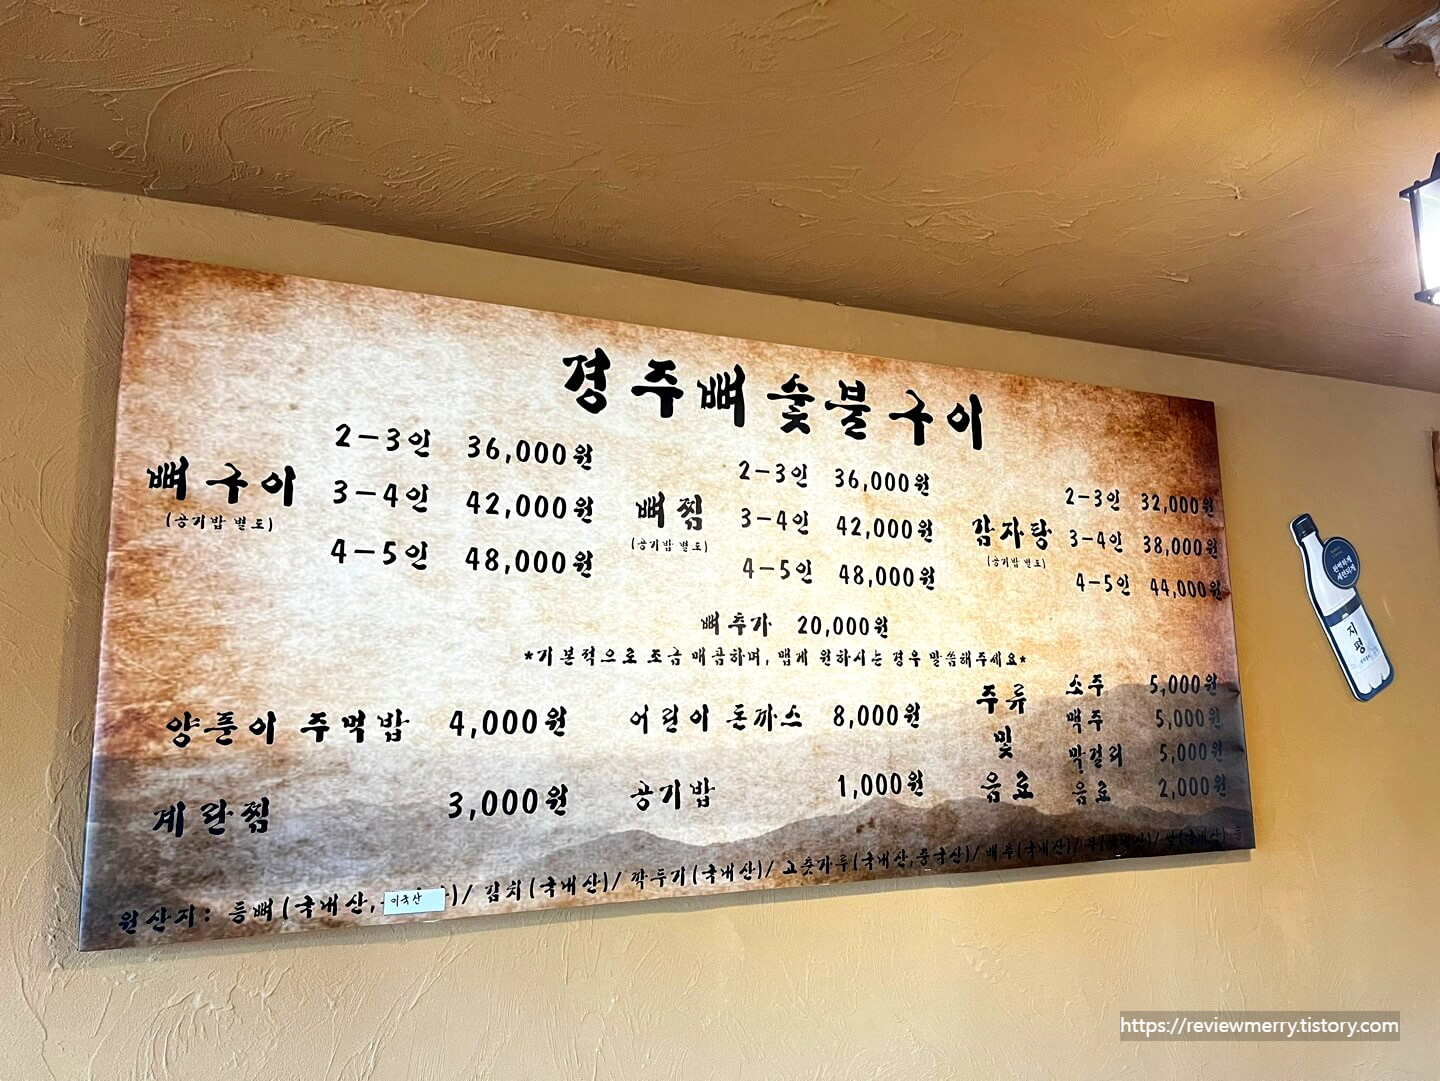 경주뼈숯불구이
뼈구이
(공기밥 별도)
2-3인 36,000원
3-4인 42,000원
4-5인 48,000원
뼈찜
(공기밥 별도)
2-3인 36,000원
3-4인 42,000원
4-5인 48,000원
감자탕
(공기밥 별도)
2-3인 32,000원
3-4인 38,000원
4-5인 44,000원
뼈추가 20,000원
*기본적으로 조금 매콤하며, 맵게 원하시는 경우 말씀해주세요*
양푼이 주먹밥 4,000원
계란찜 3,000원
어린이 돈까스 8,000원
공기밥 1,000원
주류 및 음료
소주 5,000원
맥주 5,000원
막걸리 5,000원
음료 2,000원
원산지: 등뼈(국내산, 미국산)/ 김치(국내산)/ 깍두기(국내산)/ 고춧가루(국내산,중국산)/ 배추(국내산)/ 무(국내산)/ 쌀(국내산) 등
완벽하게
지평
https://reviewmerry.tistory.com